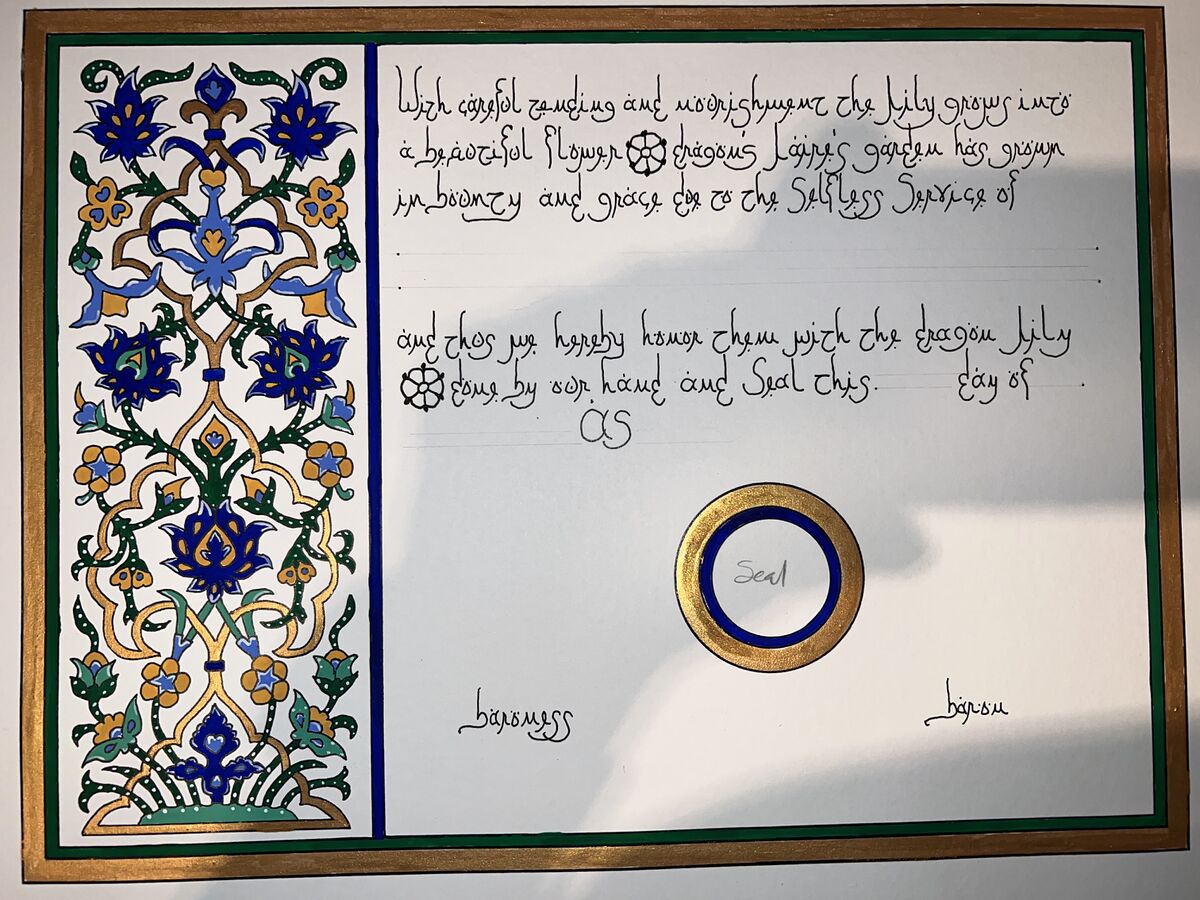 With careful tending and nourishment the lily grows into
a beautiful flower dragon's Laire's garden has grown
in bounty and grace due to the Selfless Service of
and thus we hereby honor them with the dragon lily
done by our hand and Seal this day of
AS
Seal
baroness baron